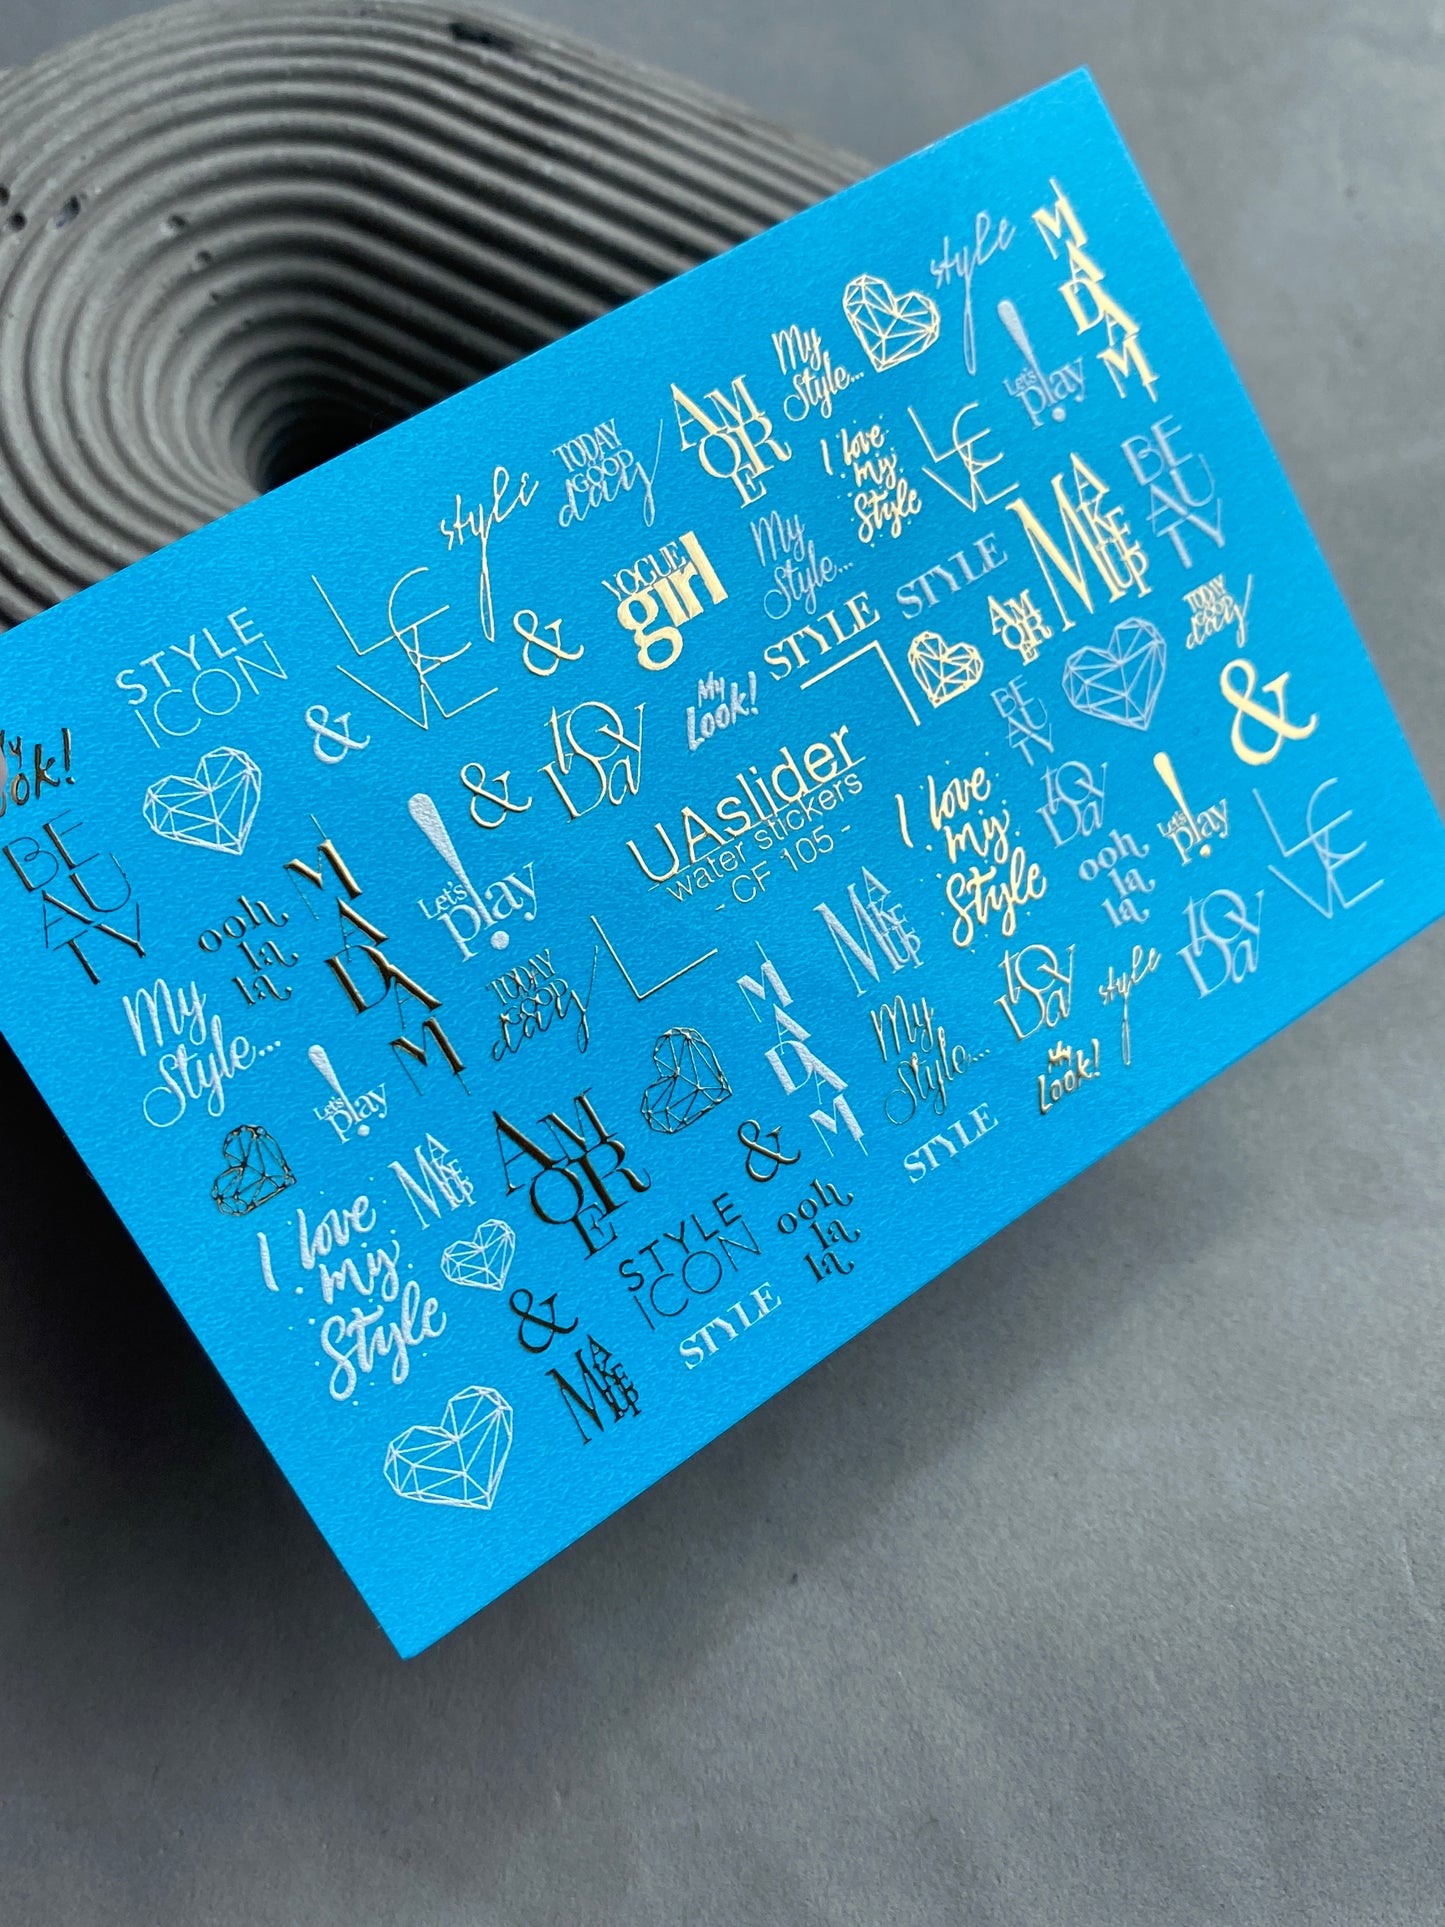 style
MADAM
My
Style...
Let's
play
AMORE
TODAY
GOOD
day
I love
my
Style
LOVE
BEAUTY
style
VOGUE
girl
My
Style...
STYLE
MAKEUP
STYLE
ICON
LOVE
&
STYLE
AMORE
TODAY
GOOD
day
&
My
Look!
BEAUTY
&
ok!
&
TODAY
UAslider
water stickers
- CF 105 -
I love
my
Style
TODAY
Let's
play
LOVE
BEAUTY
ooh
la
la
MADAM
Let's
play
ooh
la
la
MAKEUP
TODAY
TODAY
GOOD
day
MADAM
My
Style...
TODAY
style
My
Style...
Let's
play
My
Look!
AMORE
&
STYLE
MAKEUP
I love
my
Style
STYLE
ICON
ooh
la
la
&
STYLE
MAKEUP